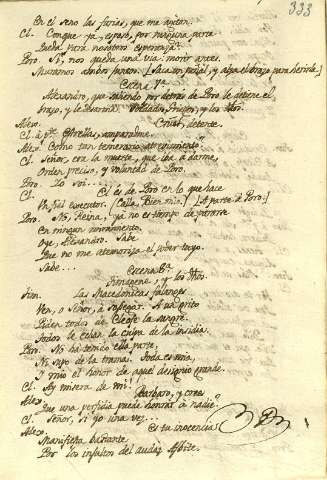 333
En el seno las furias, que me agitan.
Cl. Conque ya, esposo, por ninguna parte
Queda para nosotros esperanza?
Poro. Sí, nos queda una via: morir antes.
Muramos ambos juntos. [Saca un puñal, y alza el brazo para herirla.]
Escena 7ª
Alexandro, que saliendo por detras de Poro le detiene el
brazo, y le desarma. Soldados Griegos, y los dhos.
Alex. Cruel, detente.
Cl. à pte. Estrellas, amparadme.
Alex. Como tan temerario atrevimiento?
Cl. Señor, era la muerte, que iba à darme,
Orden preciso, y voluntad de Poro.
Poro. Yo soi...
Cl. El es de Poro en lo que hace
Un fiel executor. [Calla, Bien mio.] [A parte à Poro.]
Poro. No, Reina, ya no es tiempo de pararse
En ningun miramiento.
Oye, Alexandro. Sabe
Que no me atemoriza el poder tuyo.
Sabe...
Escena 8ª
Timagene, y los dhos.
Tim. Las Macedonicas falanges
Ven, o Señor, à sosegar. A un grito
Piden todos de Cleofe la sangre.
Todos le echan la culpa de la insidia.
Poro. No ha tenido ella parte,
Yo soi de la trama. Toda es mia,
Y mio el honor de aquel designio grande.
Cl. Ay misera de mi!
Alex. Barbaro, y crees
Que una perfidia puede honrar à nadie?
Cl. Señor, si yo una vez...
Alex. Es tu inocencia
Manifiesta bastante.
Por los insultos del audaz Asbite.